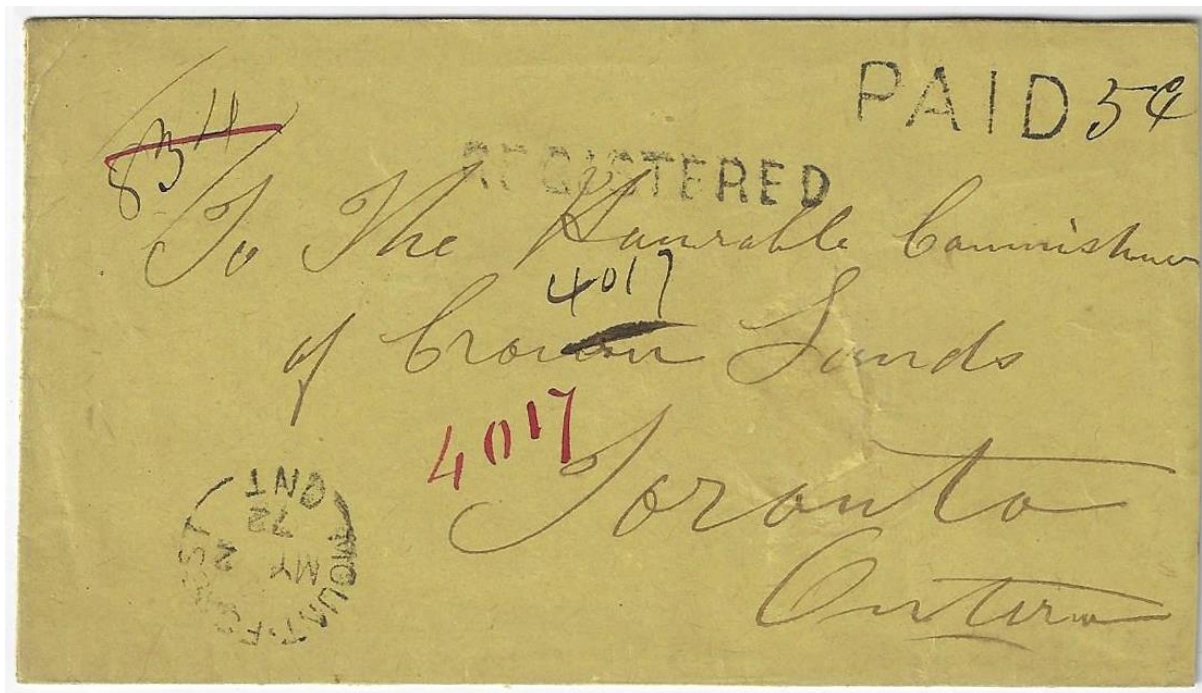 PAID 5¢
834
REGISTERED
To The Hounrable Commissioner
4017
of Crown Lands
4017
Toronto
Ontario
MOUNT-FOREST
MY 2
72
ONT